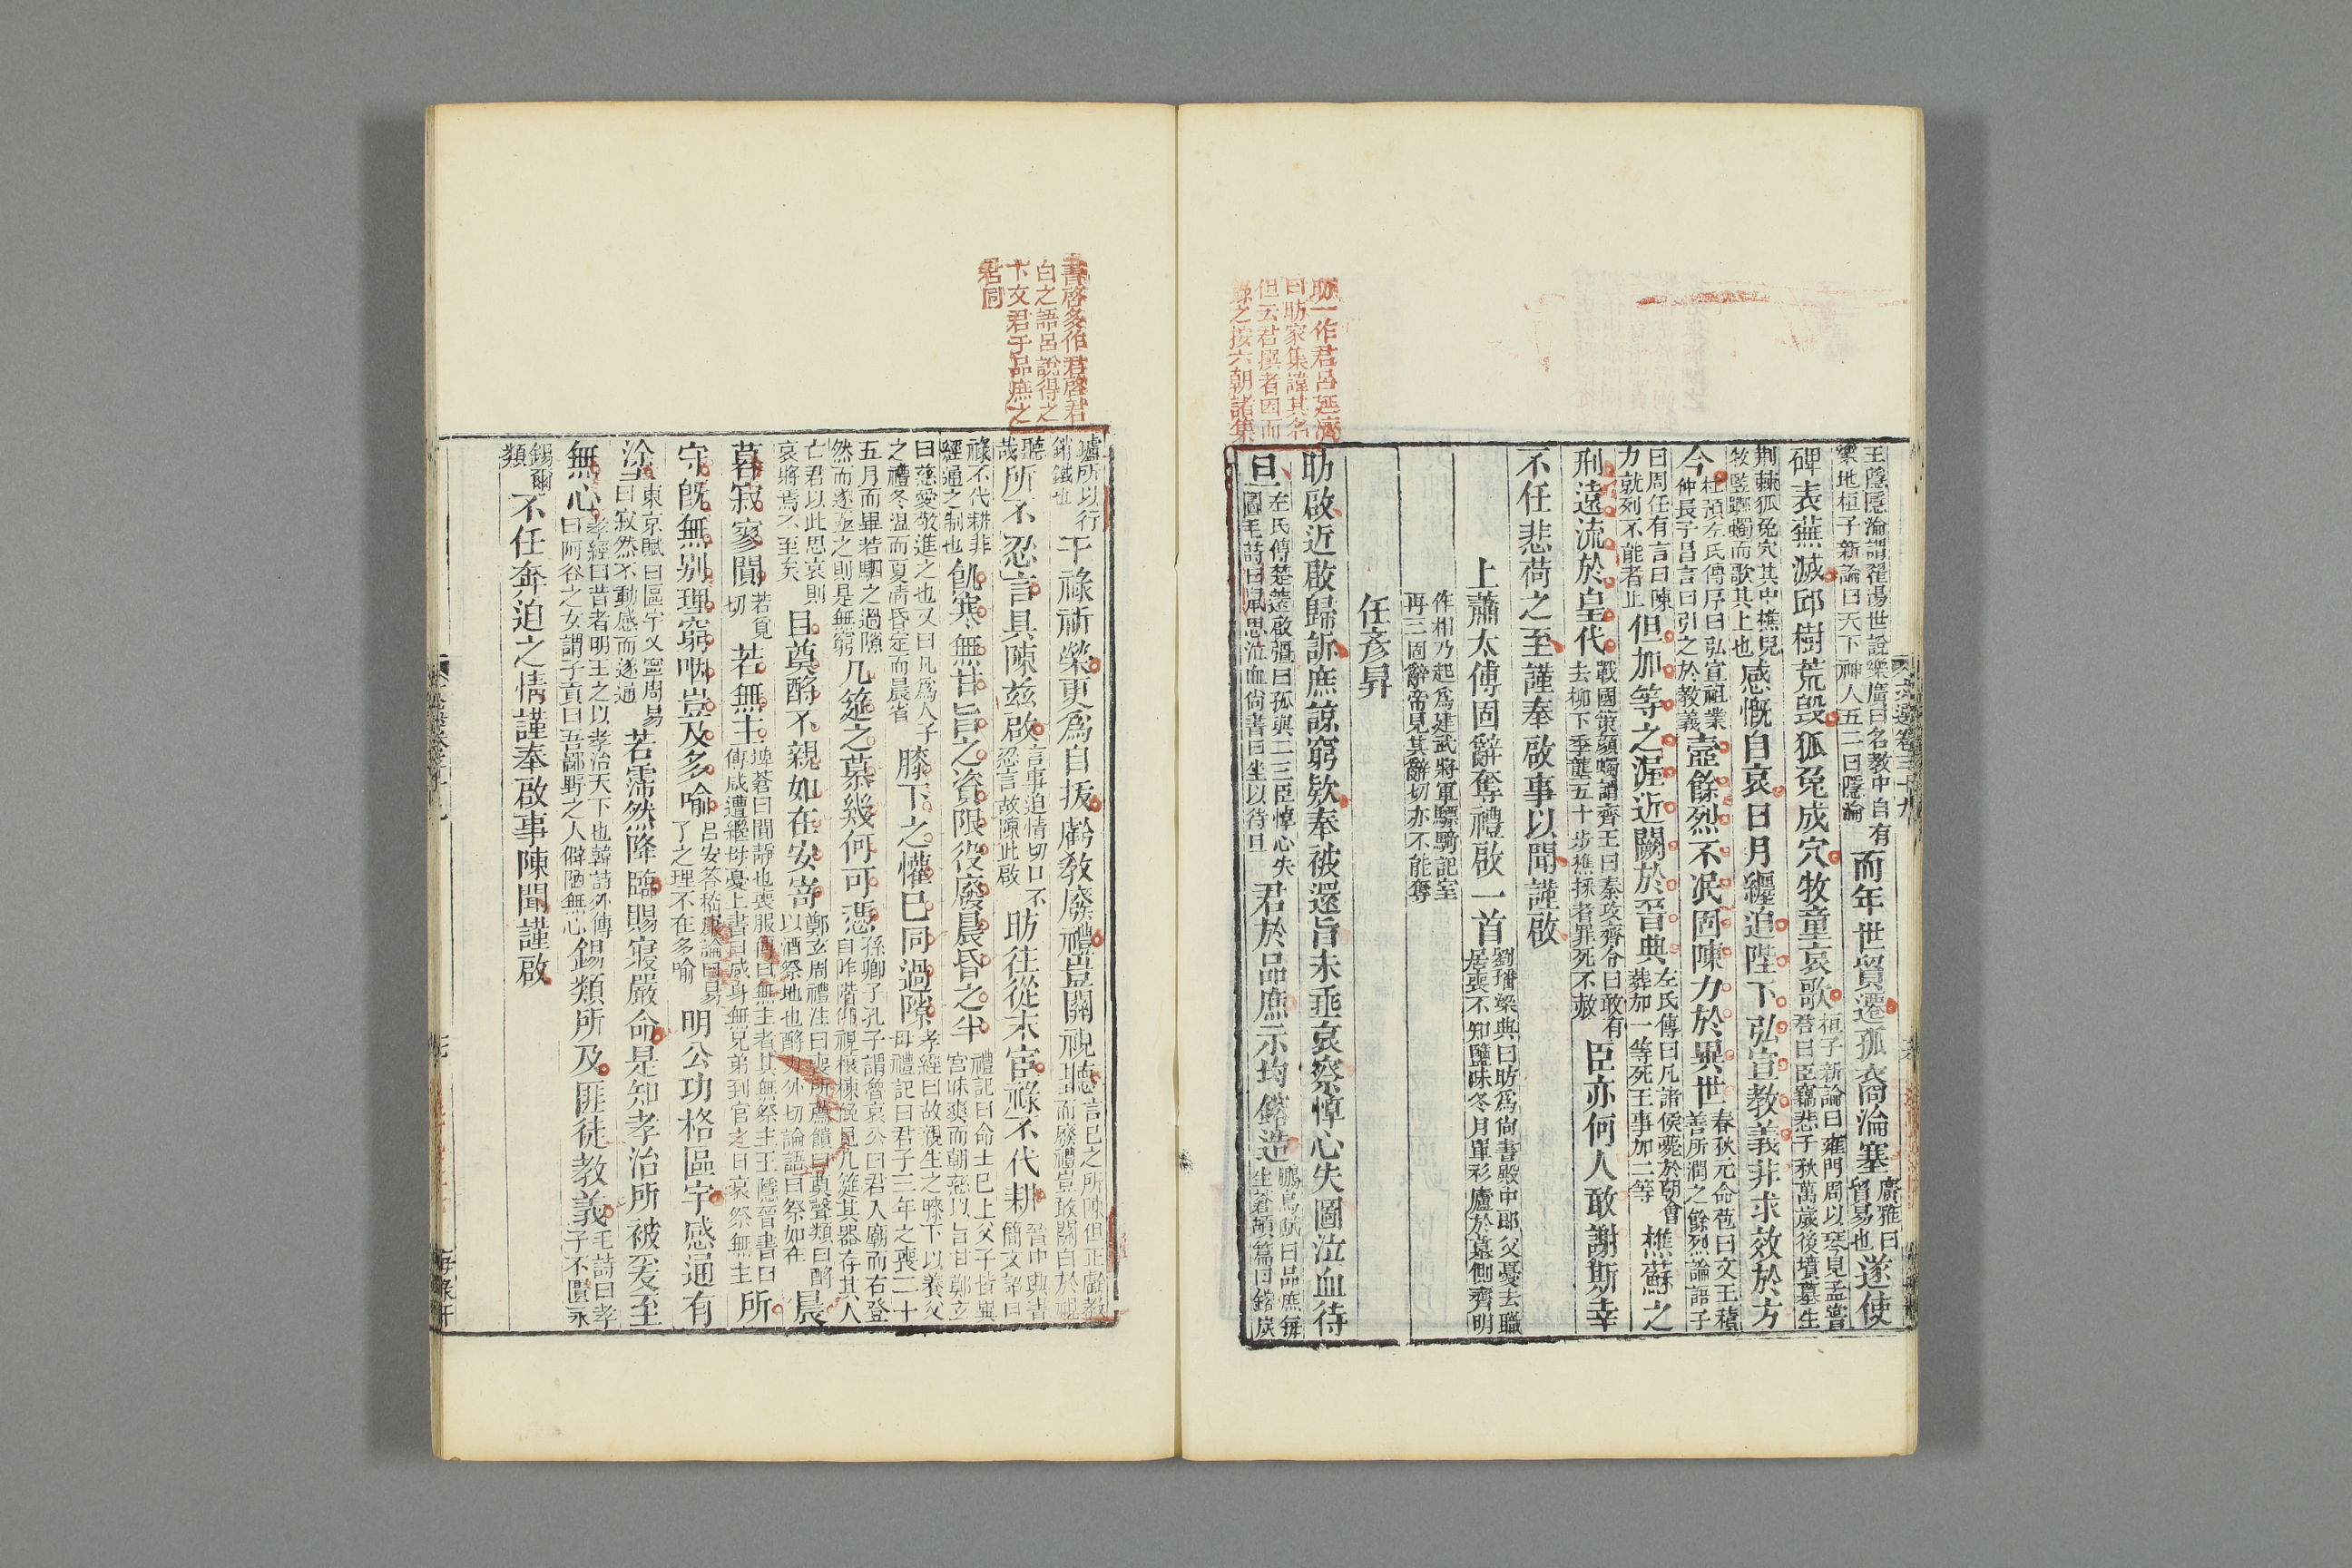 王隱隱淪謂翟湯世說樂廣曰名教中自有樂地桓子新論曰天下神人五二曰隱淪而年世貿遷孤裔淪塞廣雅曰貿易也遂使
碑表蕪滅邱樹荒毀狐兔成穴牧童哀歌桓子新論曰雍門周以琴見孟嘗君曰臣竊悲千秋萬歲後墳墓生
荆棘狐兔穴其中樵兒牧豎躑躅而歌其上也感慨自哀日月纏迫陛下弘宣教義非求效於方
今杜預左氏傳序曰弘宣祖業仲長子昌言曰引之於教義壼餘烈不泯固陳力於異世春秋元命苞曰文王積善所潤之餘烈論語子
曰周任有言曰陳力就列不能者止但加等之渥近闕於晉典左氏傳曰凡諸侯薨於朝會葬加一等死王事加二等樵蘇之
刑遠流於皇代戰國策顏斶謂齊王曰秦攻齊令曰敢有去柳下季壟五十步樵採者罪死不赦臣亦何人敢謝斯幸
不任悲荷之至謹奉啟事以聞謹啟
上蕭太傅固辭奪禮啟一首劉璠梁典曰昉爲尚書殿中郎父憂去職居喪不知鹽味冬月單衫廬於墓側齊明
作相乃起爲建武將軍驃騎記室再三固辭帝見其辭切亦不能奪
任彥昇
昉啟近啟歸訴庶諒窮款奉被還旨未垂哀察悼心失圖泣血待
旦左氏傳楚薳啟彊曰孤與二三臣悼心失圖毛詩曰鼠思泣血尚書曰坐以待旦君於品庶示均鎔造鵩鳥賦曰品庶每生蒼頡篇曰鎔炭
昉一作君呂延濟
曰昉家集諱其名
但云君撰者因而
錄之按六朝諸集
書啓多作君啓君
白之語呂說得之
下文君于品庶之
君同
爐所以行銷鐵也干祿祈榮更爲自拔虧教廢禮豈關視聽言己之所陳但正虧教而廢禮豈敢關白於視
聽哉所不忍言具陳茲啟言事迫情切口不忍言故陳此啟昉往從末宦祿不代耕晉中興書簡文詔曰
祿不代耕非經通之制也飢寒無甘旨之資限役廢晨昏之半禮記曰命士已上父子皆異宮昧爽而朝慈以旨甘鄭玄
曰慈愛敬進之也又曰凡爲人子之禮冬溫而夏凊昏定而晨省膝下之懽已同過隙孝經曰故親生之膝下以養父母禮記曰君子三年之喪二十
五月而畢若駟之過隙然而遂亟之則是無窮几筵之慕幾何可憑孫卿子孔子謂魯哀公曰君入廟而右登自阼階仰視榱棟俛見几筵其器存其人
亡君以此思哀則哀將焉不至矣且奠酹不親如在安寄鄭玄周禮注曰喪所薦饋曰奠聲類曰酹以酒祭地也酹力外切論語曰祭如在晨
暮寂寥闃若覓切若無主埤蒼曰闃靜也喪服傳曰無主者其無祭主王隱晉書曰傅咸遭繼母憂上書曰咸身無兄弟到官之日哀祭無主所
守旣無別理窮咽豈及多喻呂安荅嵇康論曰易了之理不在多喻明公功格區宇感通有
塗東京賦曰區宇乂寧周易曰寂然不動感而遂通若霈然降臨賜寢嚴命是知孝治所被爰至
無心孝經曰昔者明王之以孝治天下也韓詩外傳曰阿谷之女謂子貢曰吾鄙野之人僻陋無心錫類所及匪徒教義毛詩曰孝子不匱永
錫爾類不任奔迫之情謹奉啟事陳聞謹啟